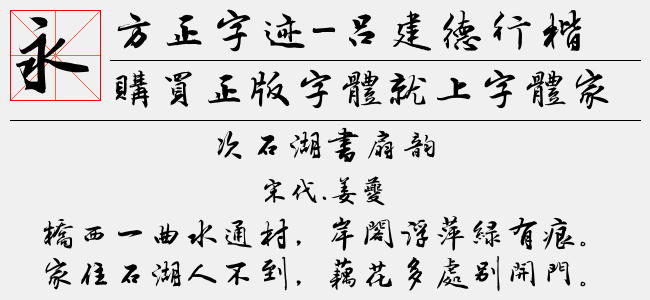 永
方正字迹-吕建德行楷
購買正版字體就上字體家
次石湖書扇韵
宋代.姜夔
橋西一曲水通村，岸閣浮萍緑有痕。
家住石湖人不到，藕花多處别開門。